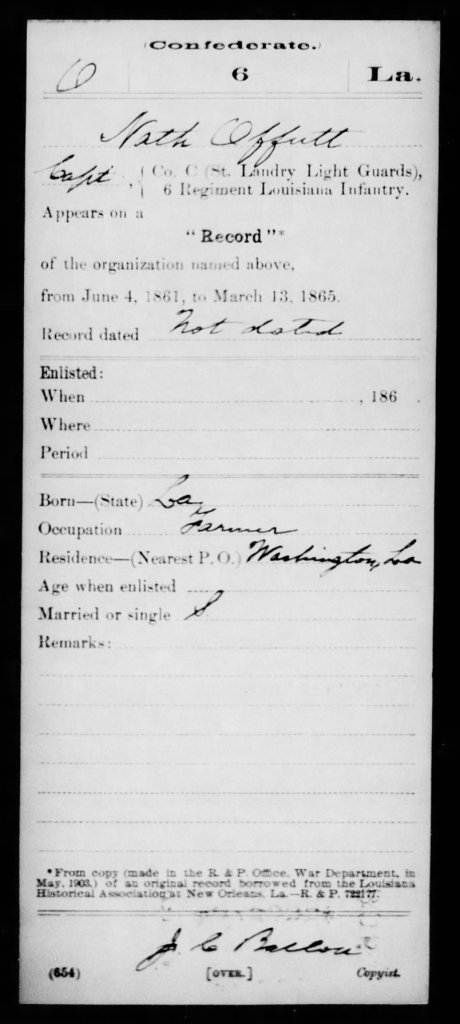 (Confederate.)
O 6 La.
Nath Offutt
Capt, { Co. C (St. Landry Light Guards),
6 Regiment Louisiana Infantry.
Appears on a
"Record"*
of the organization named above,
from June 4, 1861, to March 13, 1865.
Record dated Not dated
Enlisted:
When , 186
Where
Period
Born—(State) La,
Occupation Farmer
Residence—(Nearest P. O.) Washington, La
Age when enlisted
Married or single S
Remarks:
*From copy (made in the R. & P. Office, War Department, in
May, 1903,) of an original record borrowed from the Louisiana
Historical Association at New Orleans, La.—R. & P. 722177.
J C Ballou
(654) [OVER.] Copyist.